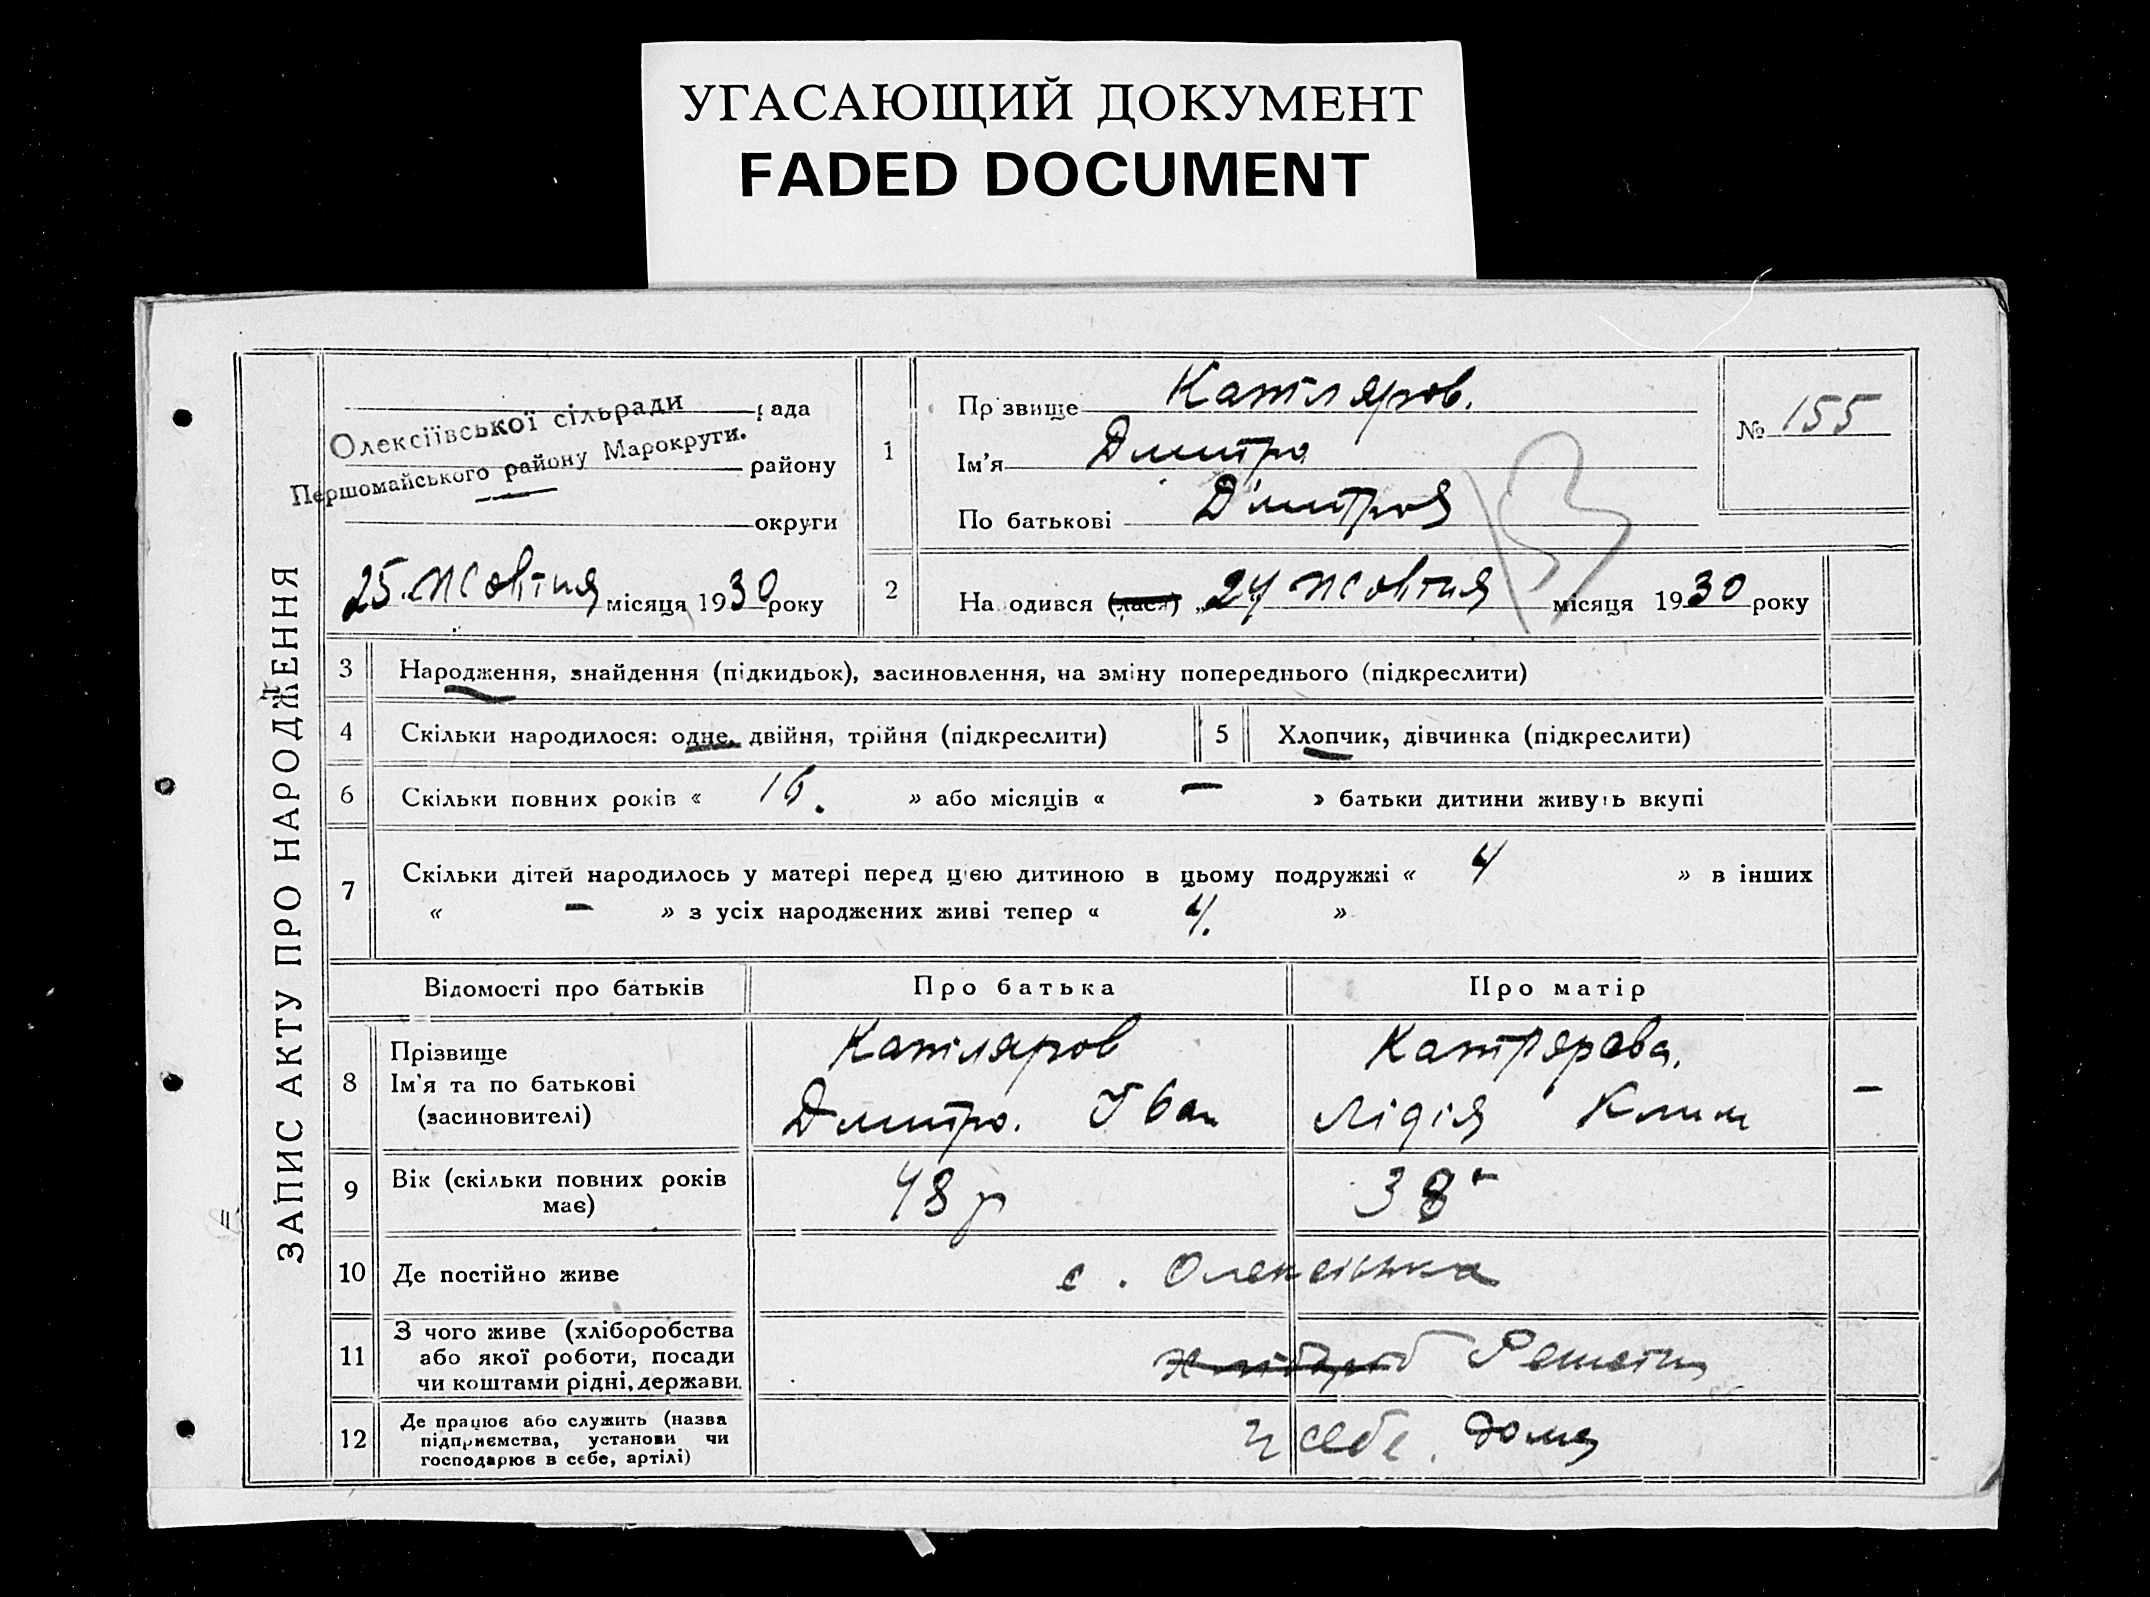 УГАСАЮЩИЙ ДОКУМЕНТ
FADED DOCUMENT
ЗАПИС АКТУ ПРО НАРОДЖЕННЯ
рада
Олексіївської сільради
району
Першомайського району Марокруги.
округи
25 жовтня місяця 1930 року
1
Прізвище Катляров.
Ім'я Дмитро
По батькові Дмитров
№ 155
2
Народився (лася) „24 жовтня місяця 1930 року
3 Народження, знайдення (підкидьок), засиновлення, на зміну попереднього (підкреслити)
4 Скільки народилося: одне, двійня, трійня (підкреслити) 5 Хлопчик, дівчинка (підкреслити)
6 Скільки повних років « 16. » або місяців « — » батьки дитини живуть вкупі
7 Скільки дітей народилось у матері перед цією дитиною в цьому подружжі « 4 » в інших
« — » з усіх народжених живі тепер « 4. »
Відомості про батьків Про батька Про матір
8 Прізвище
Ім'я та по батькові
(засиновителі)
Катляров
Дмитро. Іван
Катлярова.
Лідія Клим
—
9 Вік (скільки повних років
має)
48 р
38
10 Де постійно живе с. Олексіївка
11 З чого живе (хліборобства
або якої роботи, посади
чи коштами рідні, держави.
хлібороб
12 Де працює або служить (назва
підприємства, установи чи
господарює в себе, артілі)
у себе. дома